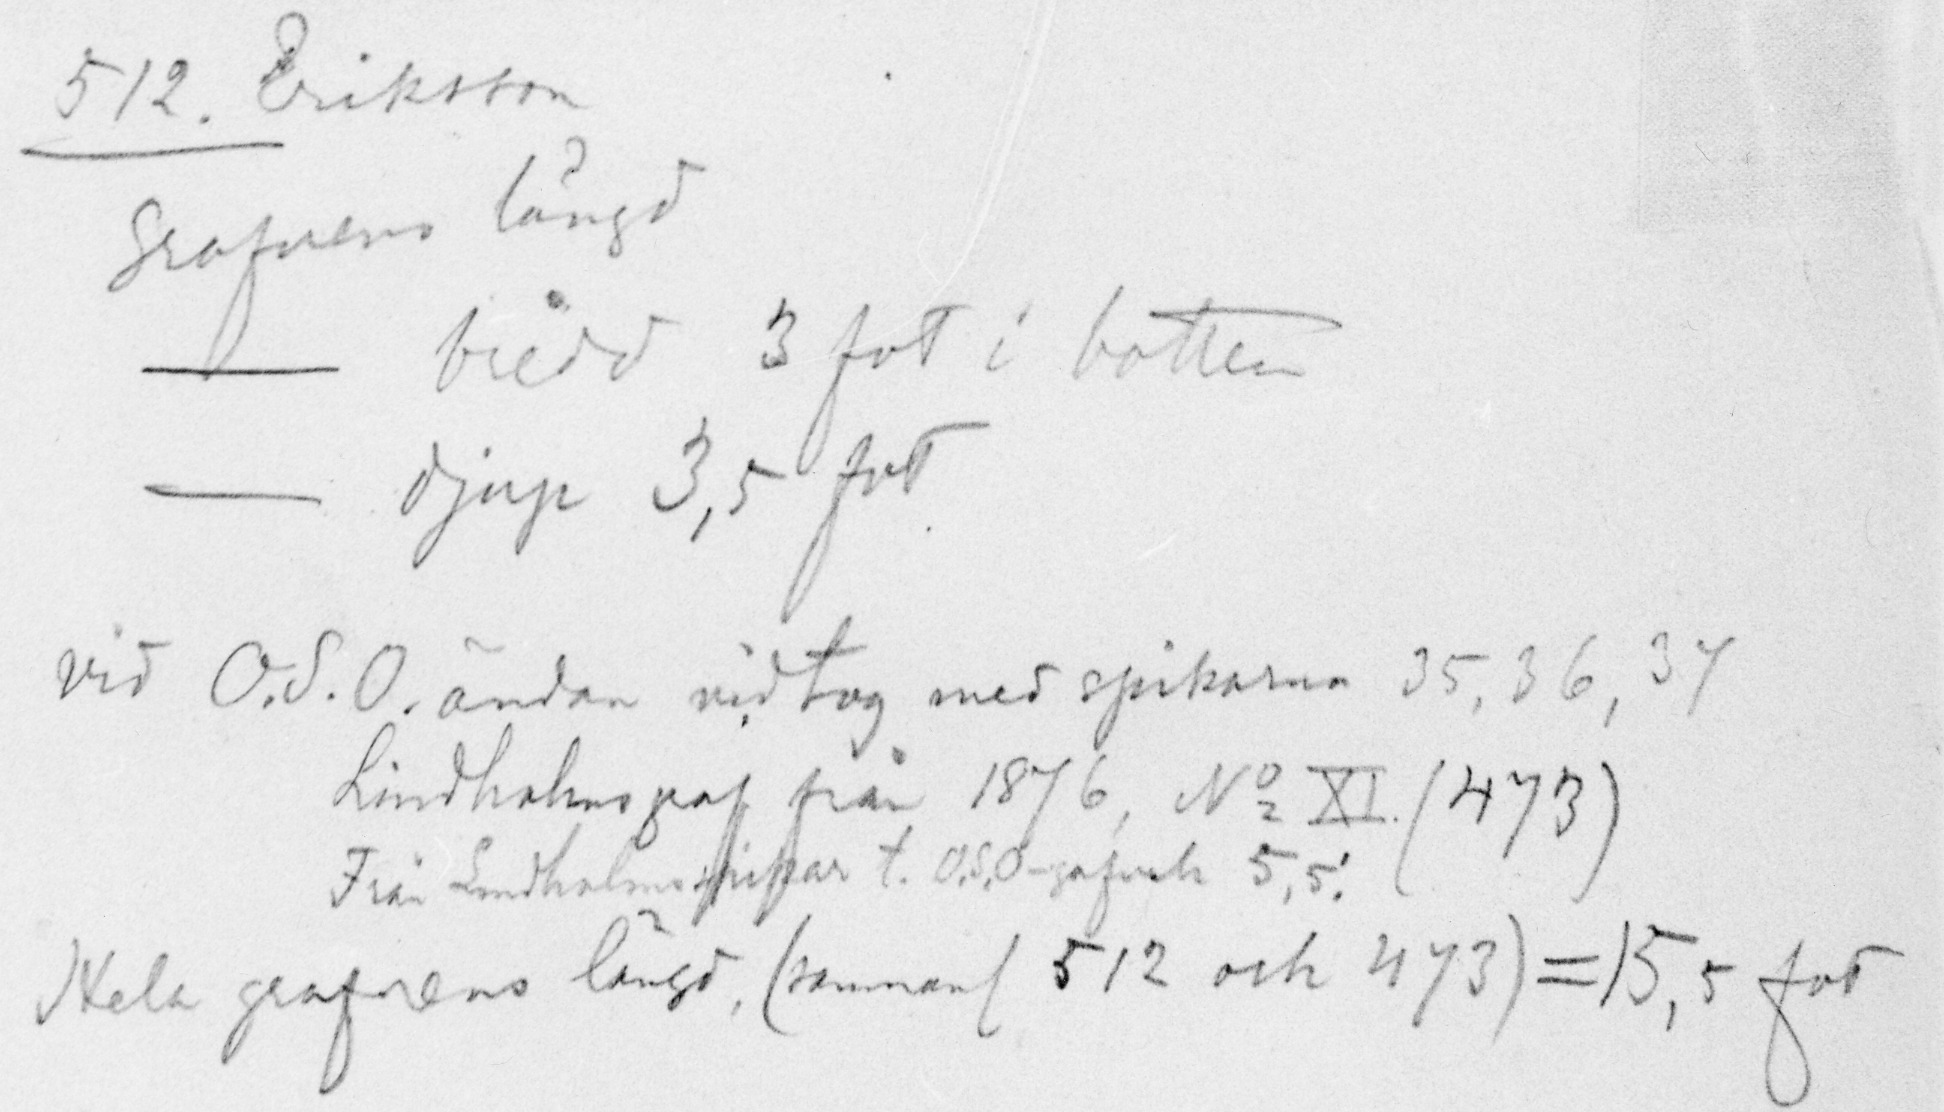 512. Eriksson
Grafvens längd
— bredd 3 fot i botten
— djup 3,5 fot.
vid O.S.O. ändan vidtog med spikarna 35, 36, 37
Lindholms graf från 1876, No XI. (473)
Från Lindholms spikar t. O.S.O - 5,5'.
Hela grafvens längd, (samman 512 och 473) = 15,5 fot